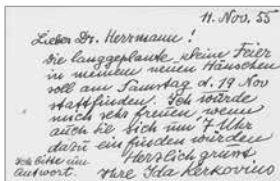 11. Nov. 55
Lieber Dr. Herrmann!
die langgeplante kleine Feier
in meinem neuen Häuschen
soll am Samstag d. 19 Nov
stattfinden. Ich würde
mich sehr freuen wenn
auch sie sich um 7 Uhr
dazu einfinden würden
Herzlich grüsst
Ich bitte um
Antwort.
Ihre Ida Kerkovius